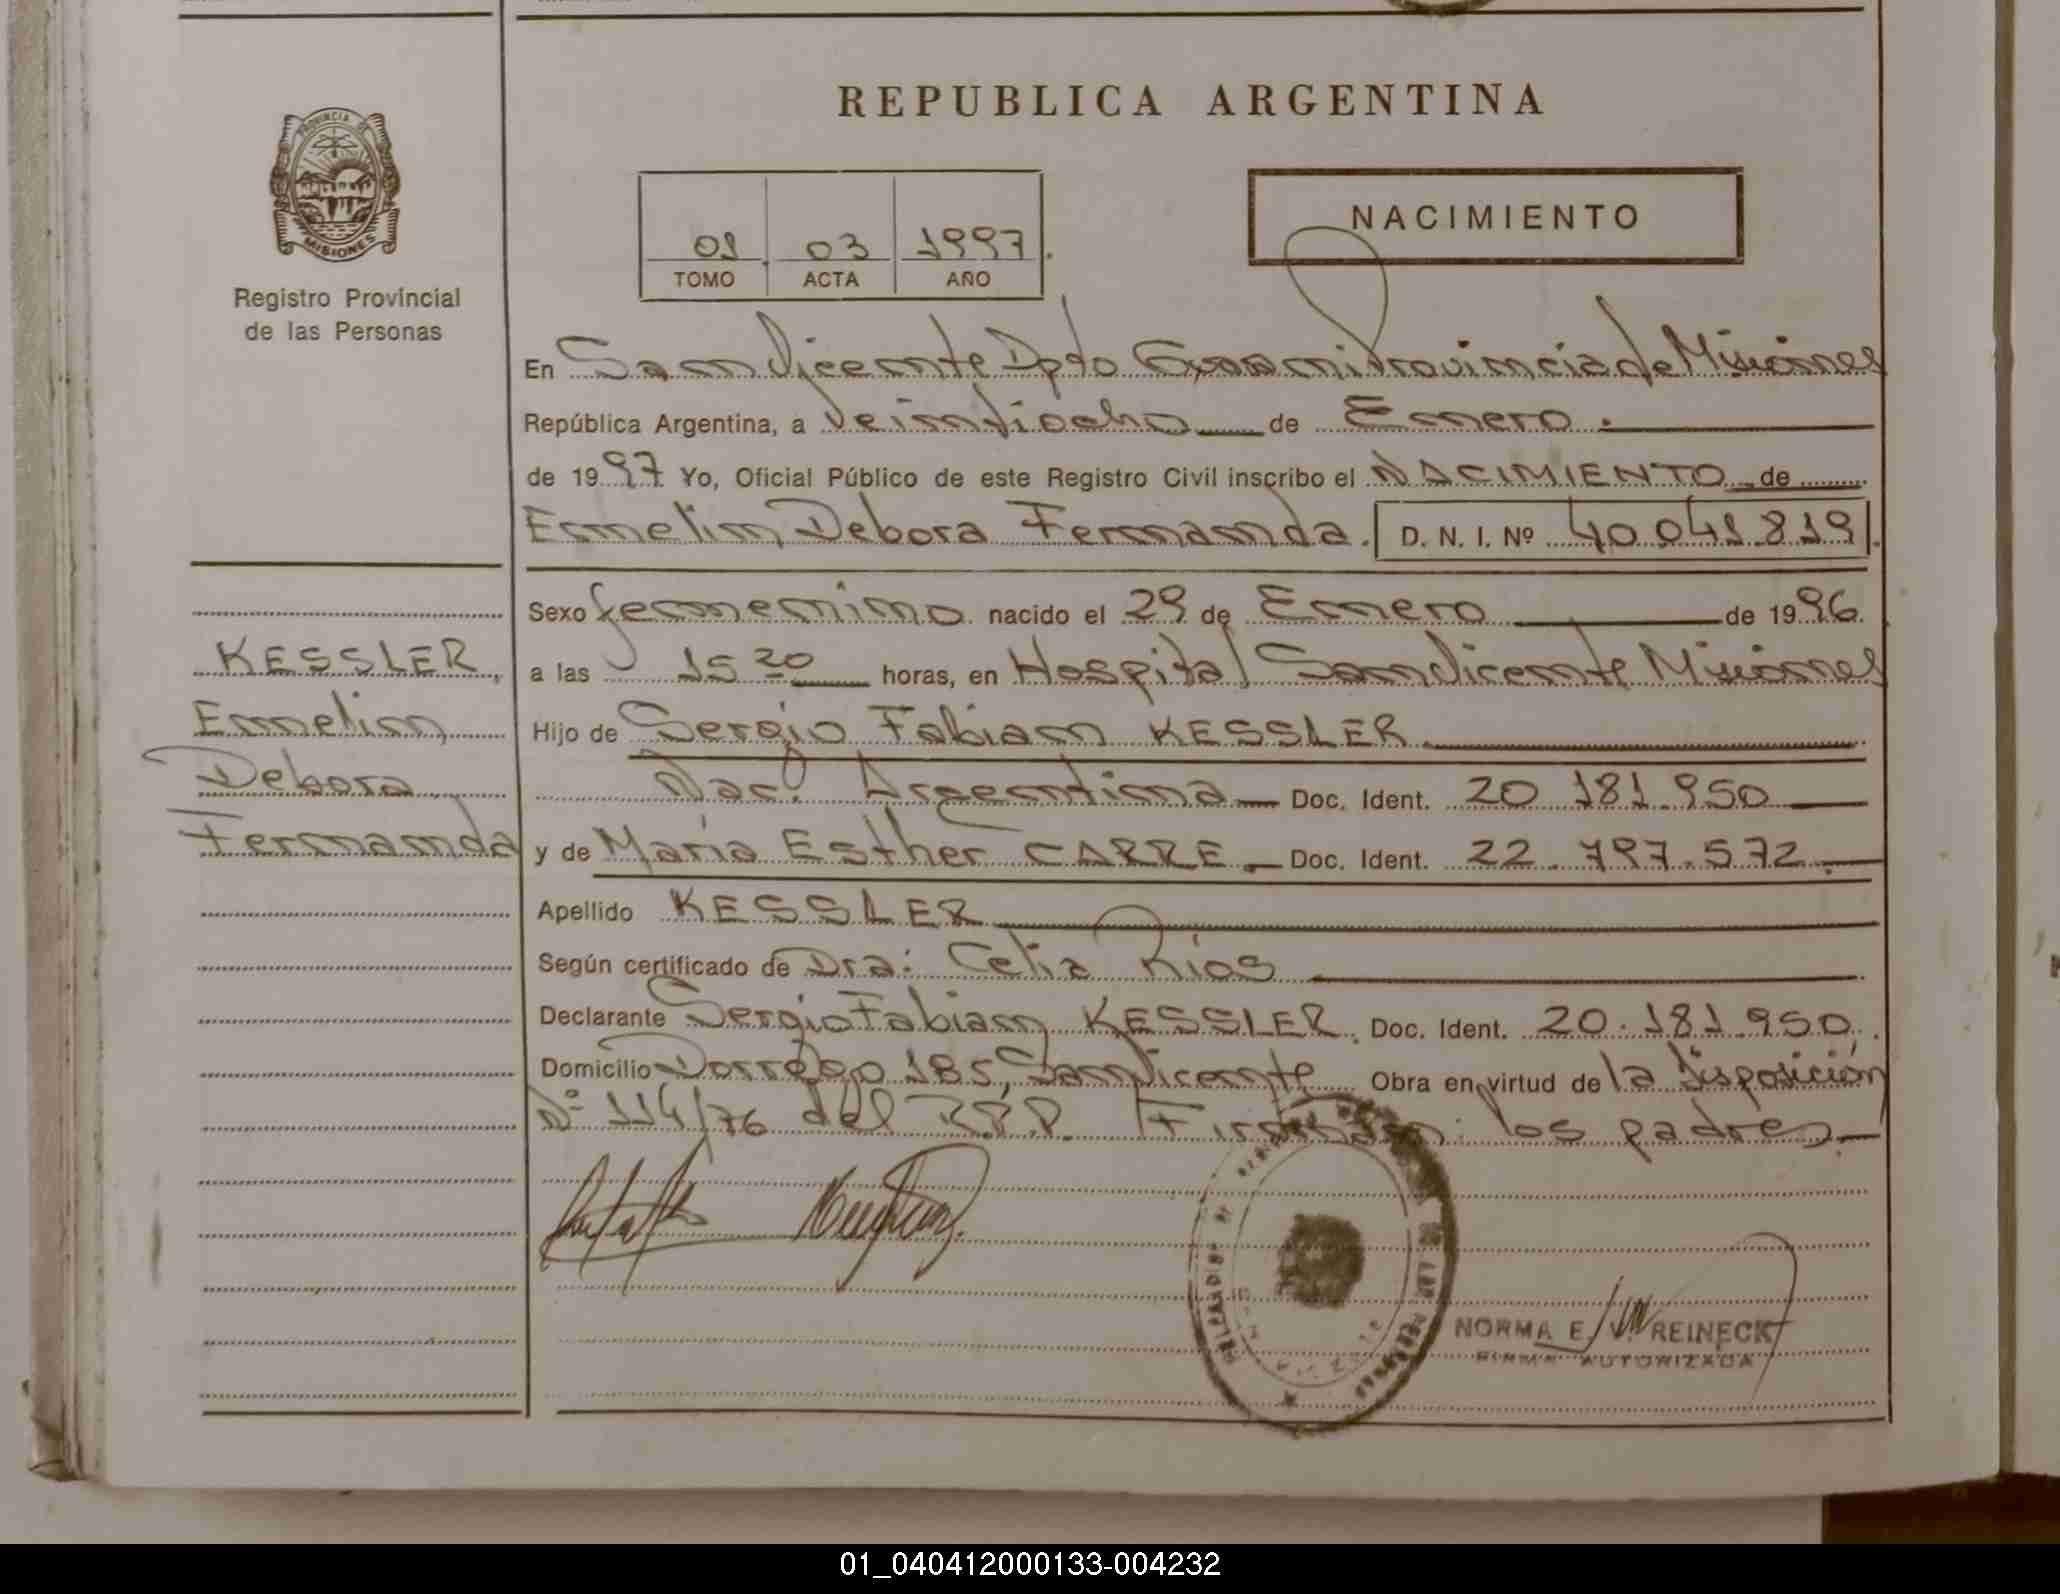 REPUBLICA ARGENTINA
PROVINCIA DE
MISIONES
Registro Provincial
de las Personas
01 03 1997
TOMO ACTA AÑO
NACIMIENTO
En San Vicente Dpto Guarani Provincia de Misiones
República Argentina, a Veintiocho de Enero.
de 1997 Yo, Oficial Público de este Registro Civil inscribo el NACIMIENTO de
Emelin Debora Fernanda. D. N. I. Nº 40.041.819
Sexo femenino nacido el 29 de Enero de 1996
a las 15 20 horas, en Hospital San Vicente Misiones
Hijo de Sergio Fabian KESSLER
Nac. Argentina Doc. Ident. 20 181.950
y de Maria Esther CARRE Doc. Ident. 22.797.572
Apellido KESSLER
Según certificado de Dra: Celia Rios
Declarante Sergio Fabian KESSLER. Doc. Ident. 20.181.950
Domicilio Dorrego 185, San Vicente Obra en virtud de la disposición
Nº 114/76 del R.P.P. Firman los padres.
KESSLER
Emelin
Debora
Fernanda
NORMA E. V. REINECK
FIRMA AUTORIZADA
01_040412000133-004232